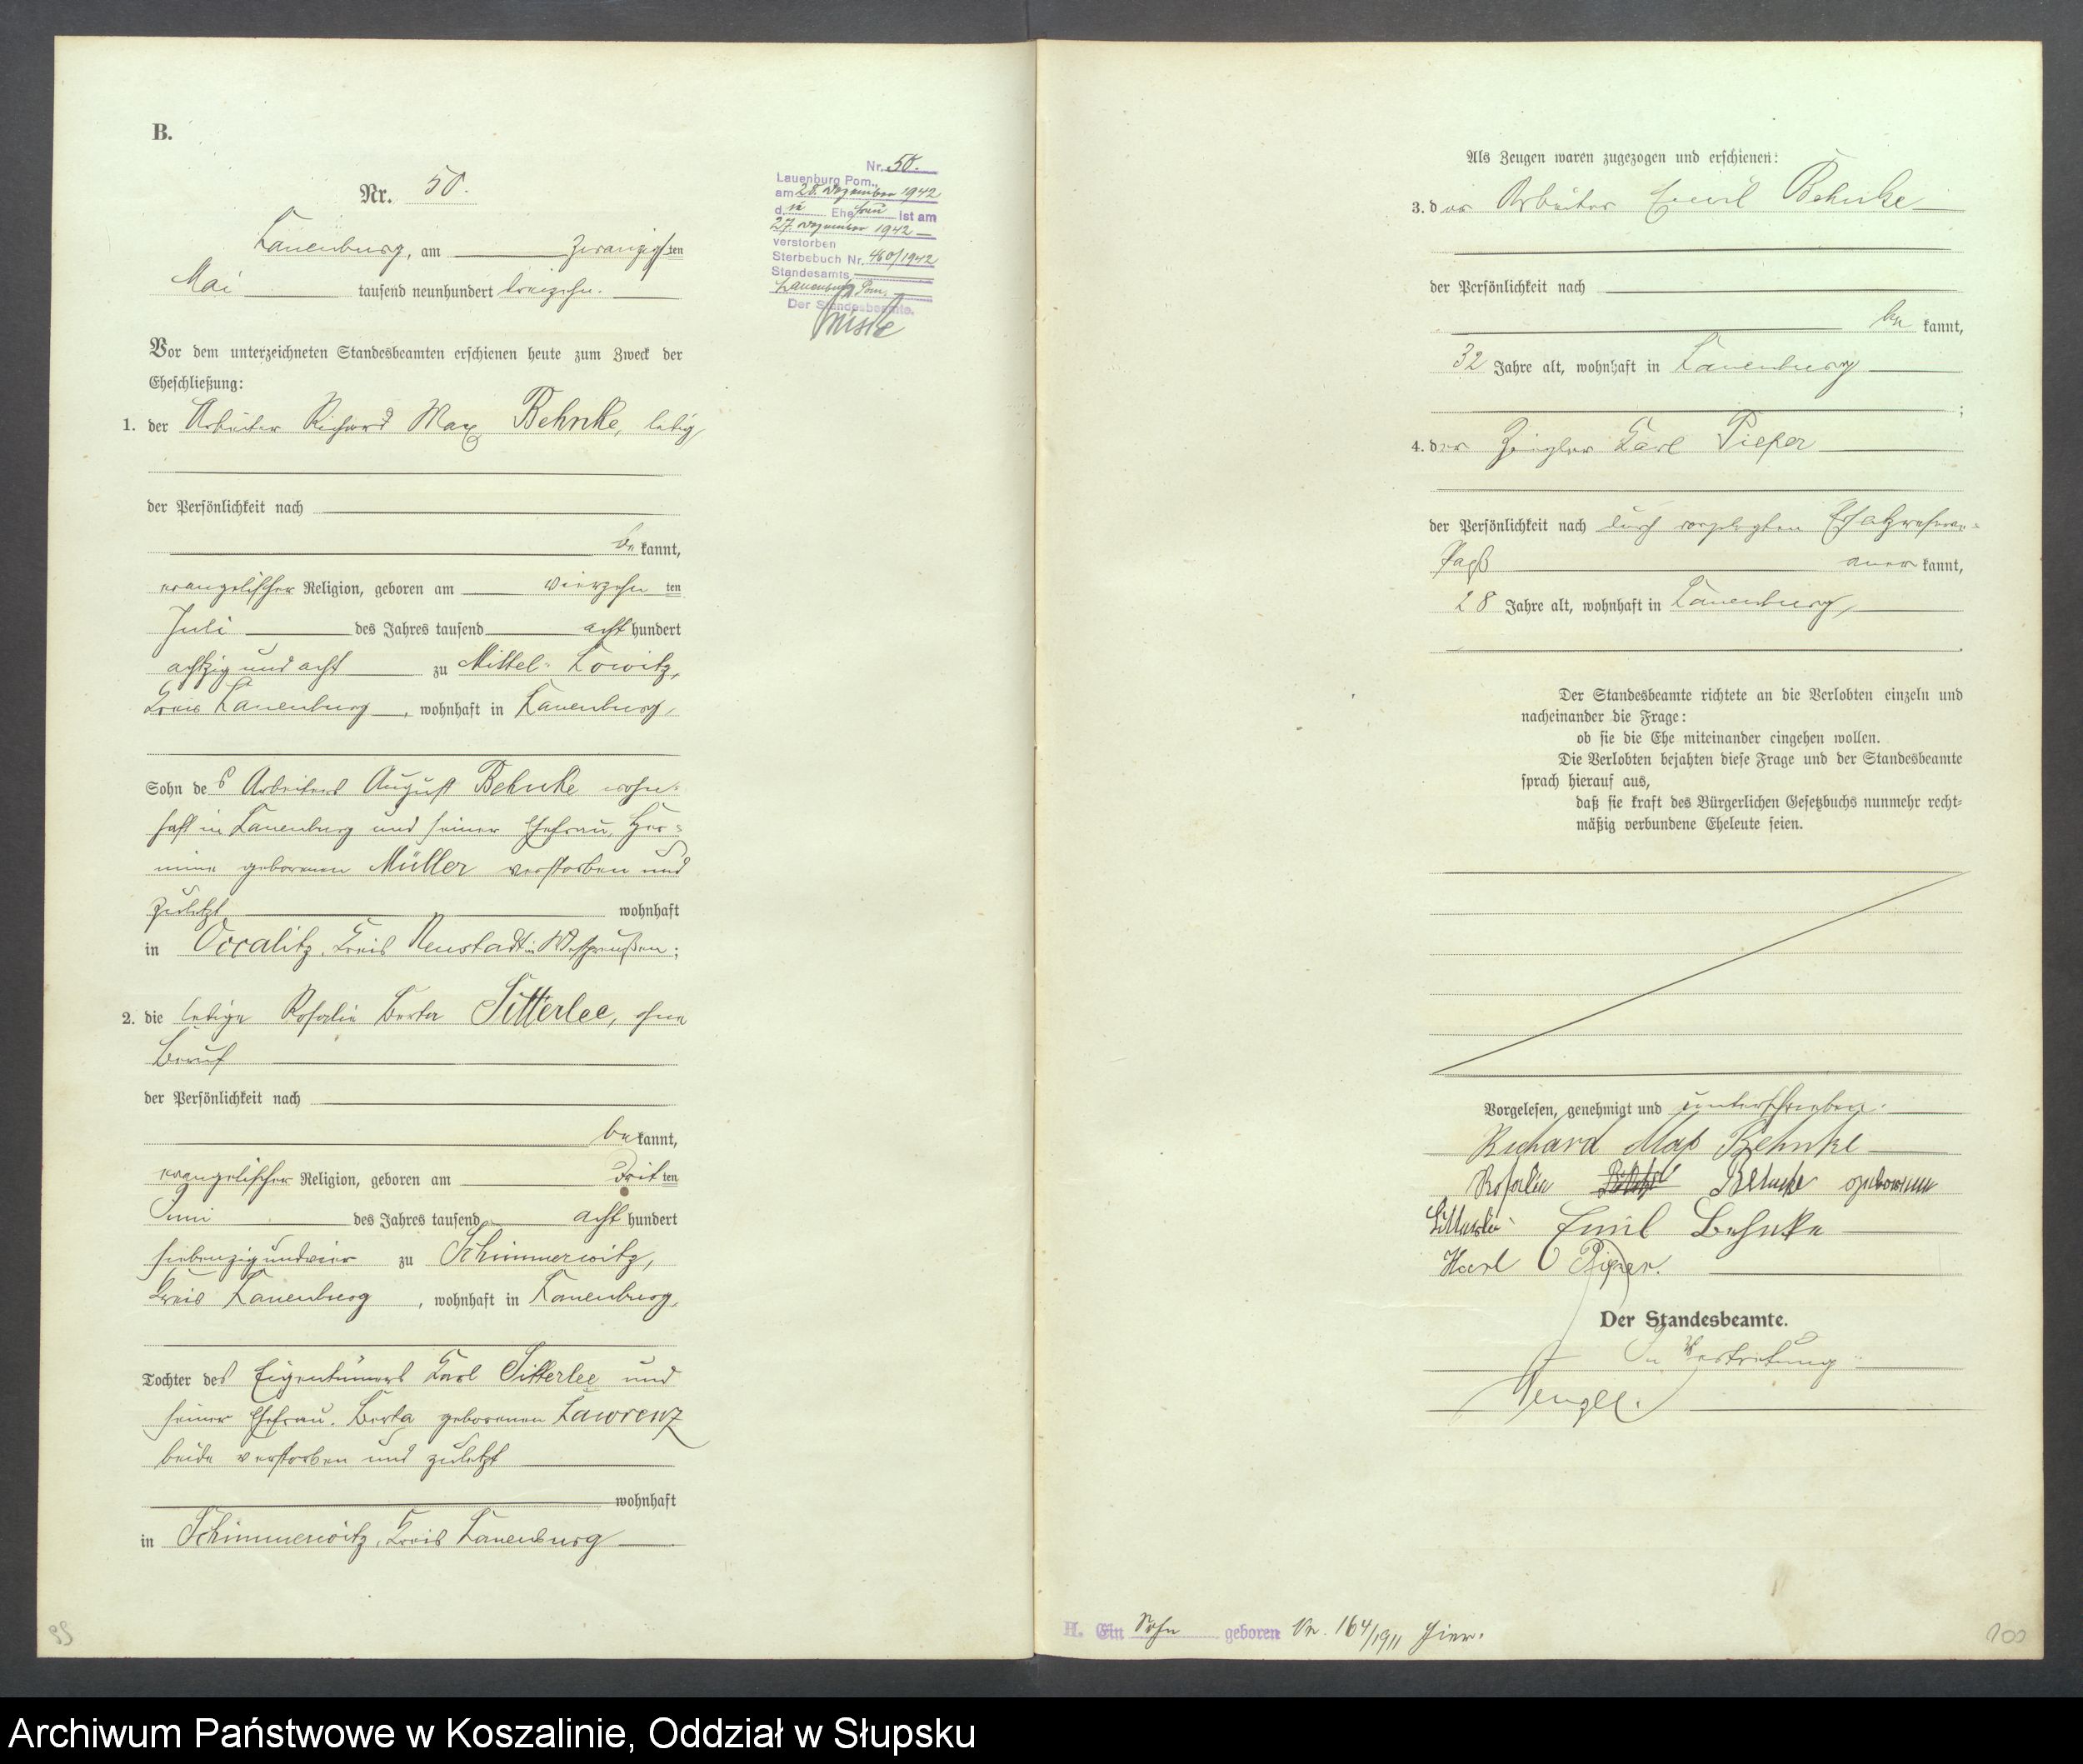 B.
Nr. 50.
Lauenburg, am zwanzigsten
Mai tausend neunhundert dreizehn.
Vor dem unterzeichneten Standesbeamten erschienen heute zum Zweck der
Eheschließung:
1. der Arbeiter Richard Max Behnke, ledig
der Persönlichkeit nach
bekannt,
evangelischer Religion, geboren am vierzehnten
Juli des Jahres tausend achthundert
achtzig und acht zu Mittel-Lowitz,
Kreis Lauenburg, wohnhaft in Lauenburg,
Sohn des Arbeiters August Behnke wohn-
haft in Lauenburg und seiner Ehefrau, Her-
mine geborenen Müller verstorben und
zuletzt wohnhaft
in Occalitz, Kreis Neustadt in Westpreußen;
2. die ledige Rosalie Berta Sitterlee, ohne
Beruf
der Persönlichkeit nach
bekannt,
evangelischer Religion, geboren am dritten
Juni des Jahres tausend achthundert
siebenzig und vier zu Schimmerwitz,
Kreis Lauenburg, wohnhaft in Lauenburg,
Tochter des Eigentümers Karl Sitterlee und
seiner Ehefrau, Berta geborenen Lawrenz
beide verstorben und zuletzt
wohnhaft
in Schimmerwitz, Kreis Lauenburg
99
Nr. 50.
Lauenburg Pom.,
am 28. Dezember 1942
die Ehefrau ist am
27. Dezember 1942
verstorben
Sterbebuch Nr. 460/1942
Standesamts
Lauenburg Pom.
Der Standesbeamte.
Als Zeugen waren zugezogen und erschienen:
3. der Arbeiter Emil Behnke
der Persönlichkeit nach
bekannt,
32 Jahre alt, wohnhaft in Lauenburg
;
4. der Ziegler Karl Pieper
der Persönlichkeit nach durch vorgelegten Ersatzreserve-
paß anerkannt,
28 Jahre alt, wohnhaft in Lauenburg,
Der Standesbeamte richtete an die Verlobten einzeln und
nacheinander die Frage:
ob sie die Ehe miteinander eingehen wollen.
Die Verlobten bejahten diese Frage und der Standesbeamte
sprach hierauf aus,
daß sie kraft des Bürgerlichen Gesetzbuchs nunmehr recht-
mäßig verbundene Eheleute seien.
Vorgelesen, genehmigt und unterschrieben.
Richard Max Behnke
Rosalie Behnke geborene
Sitterlee Emil Behnke
Karl Pieper.
Der Standesbeamte.
In Vertretung
H. Ein Sohn geboren Nr. 164/1911 hier.
100
Archiwum Państwowe w Koszalinie, Oddział w Słupsku